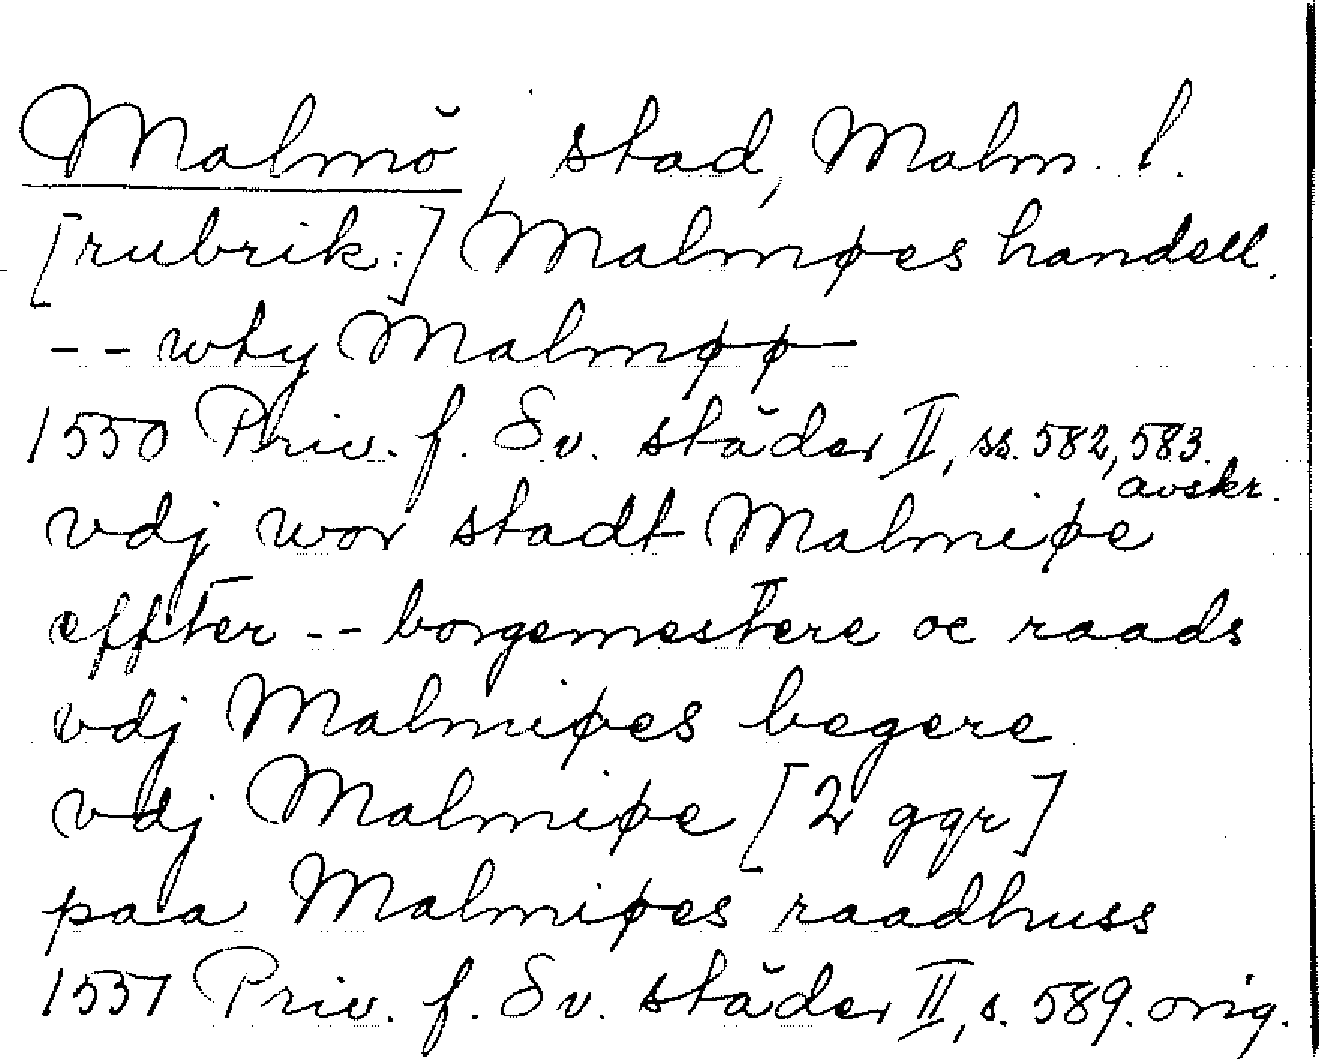 Malmö, stad, Malm. l.
[rubrik:] Malmøes handell.
-- wty Malmøø
1550 Priv. f. Sv. städer II, ss. 582, 583. avskr.
vdj wor stadt Malmiøe
effter -- borgemestere oc raads
vdj Malmiøes begere
vdj Malmiøe [2 ggr]
paa Malmiøes raadhuss
1551 Priv. f. Sv. städer II, s. 589. orig.